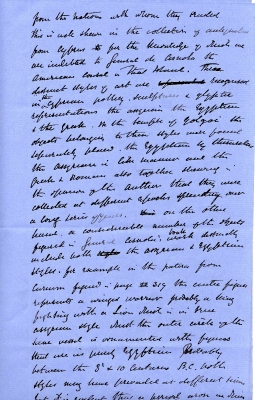 from the nation with whom they traded
This is not shewn in the collection of antiquities
from Cyprus for the knowledge of which we
are indebted to General de Cesnola the
American consul in that Island. Three
distinct styles of art are recognised
in the Cyprian pottery, sculptures & glyptic
representations the assyrian the Egyptian
& the Greek. In the temple of Golgoi the
objects belonging to these styles were found
separately placed, the Egyptian by themselves
the assyrian in like manner and the
Greek & Romans also together shewing in
the opinion of the author that they were
collected at different epochs extending over
a long series of years. On the other
hand, a considerable number of the objects
figured in General Cesnola's book distinctly
include both the assyrian & Egyptian
styles, for example in the patera from
Curium figured in page 329 the centre figure
represents a winged warrior probably a King
fighting with a Lion which is in true
assyrian style whilst the outer circle of the
same vessel is ornamented with figures
that are as purely Egyptian Probably
between the 8th & 10 Centuries B.C. both
styles may have prevailed at different times
but it is evident there a period arose in